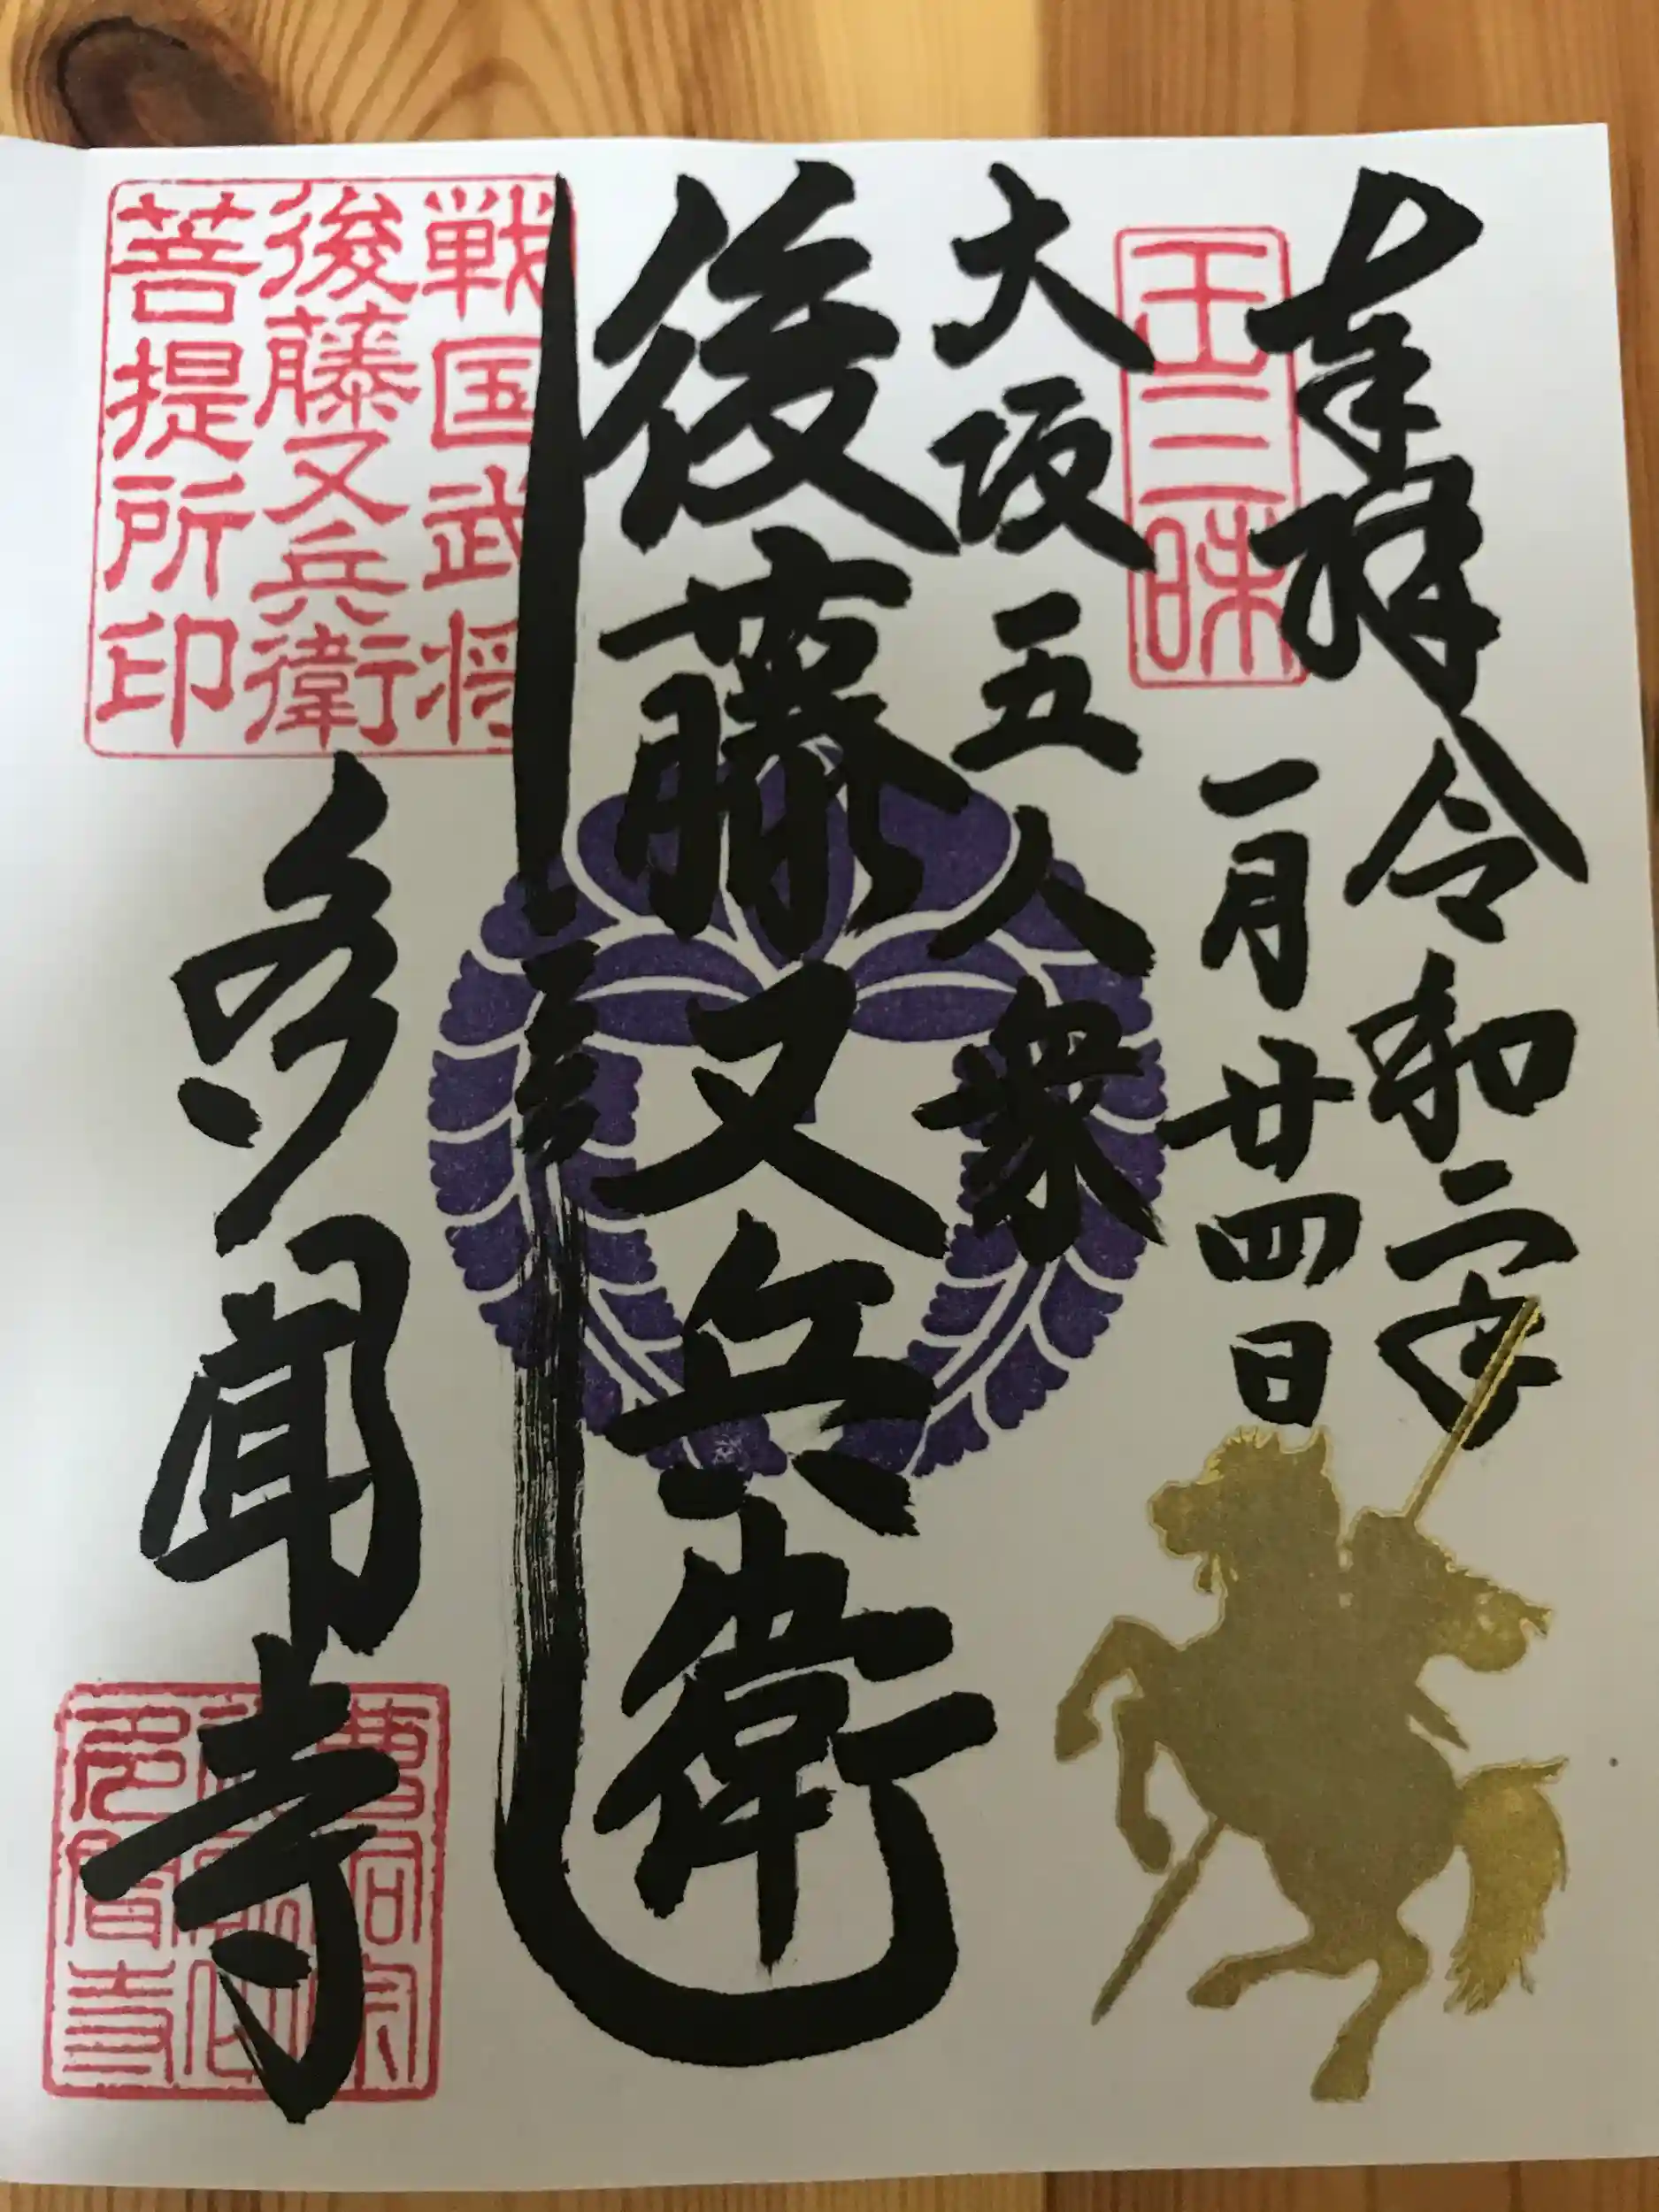 奉拝
令和二年
一月廿四日
王三昧
大坂五人衆
後藤又兵衛
戦国武将
後藤又兵衛
菩提所印
多聞寺